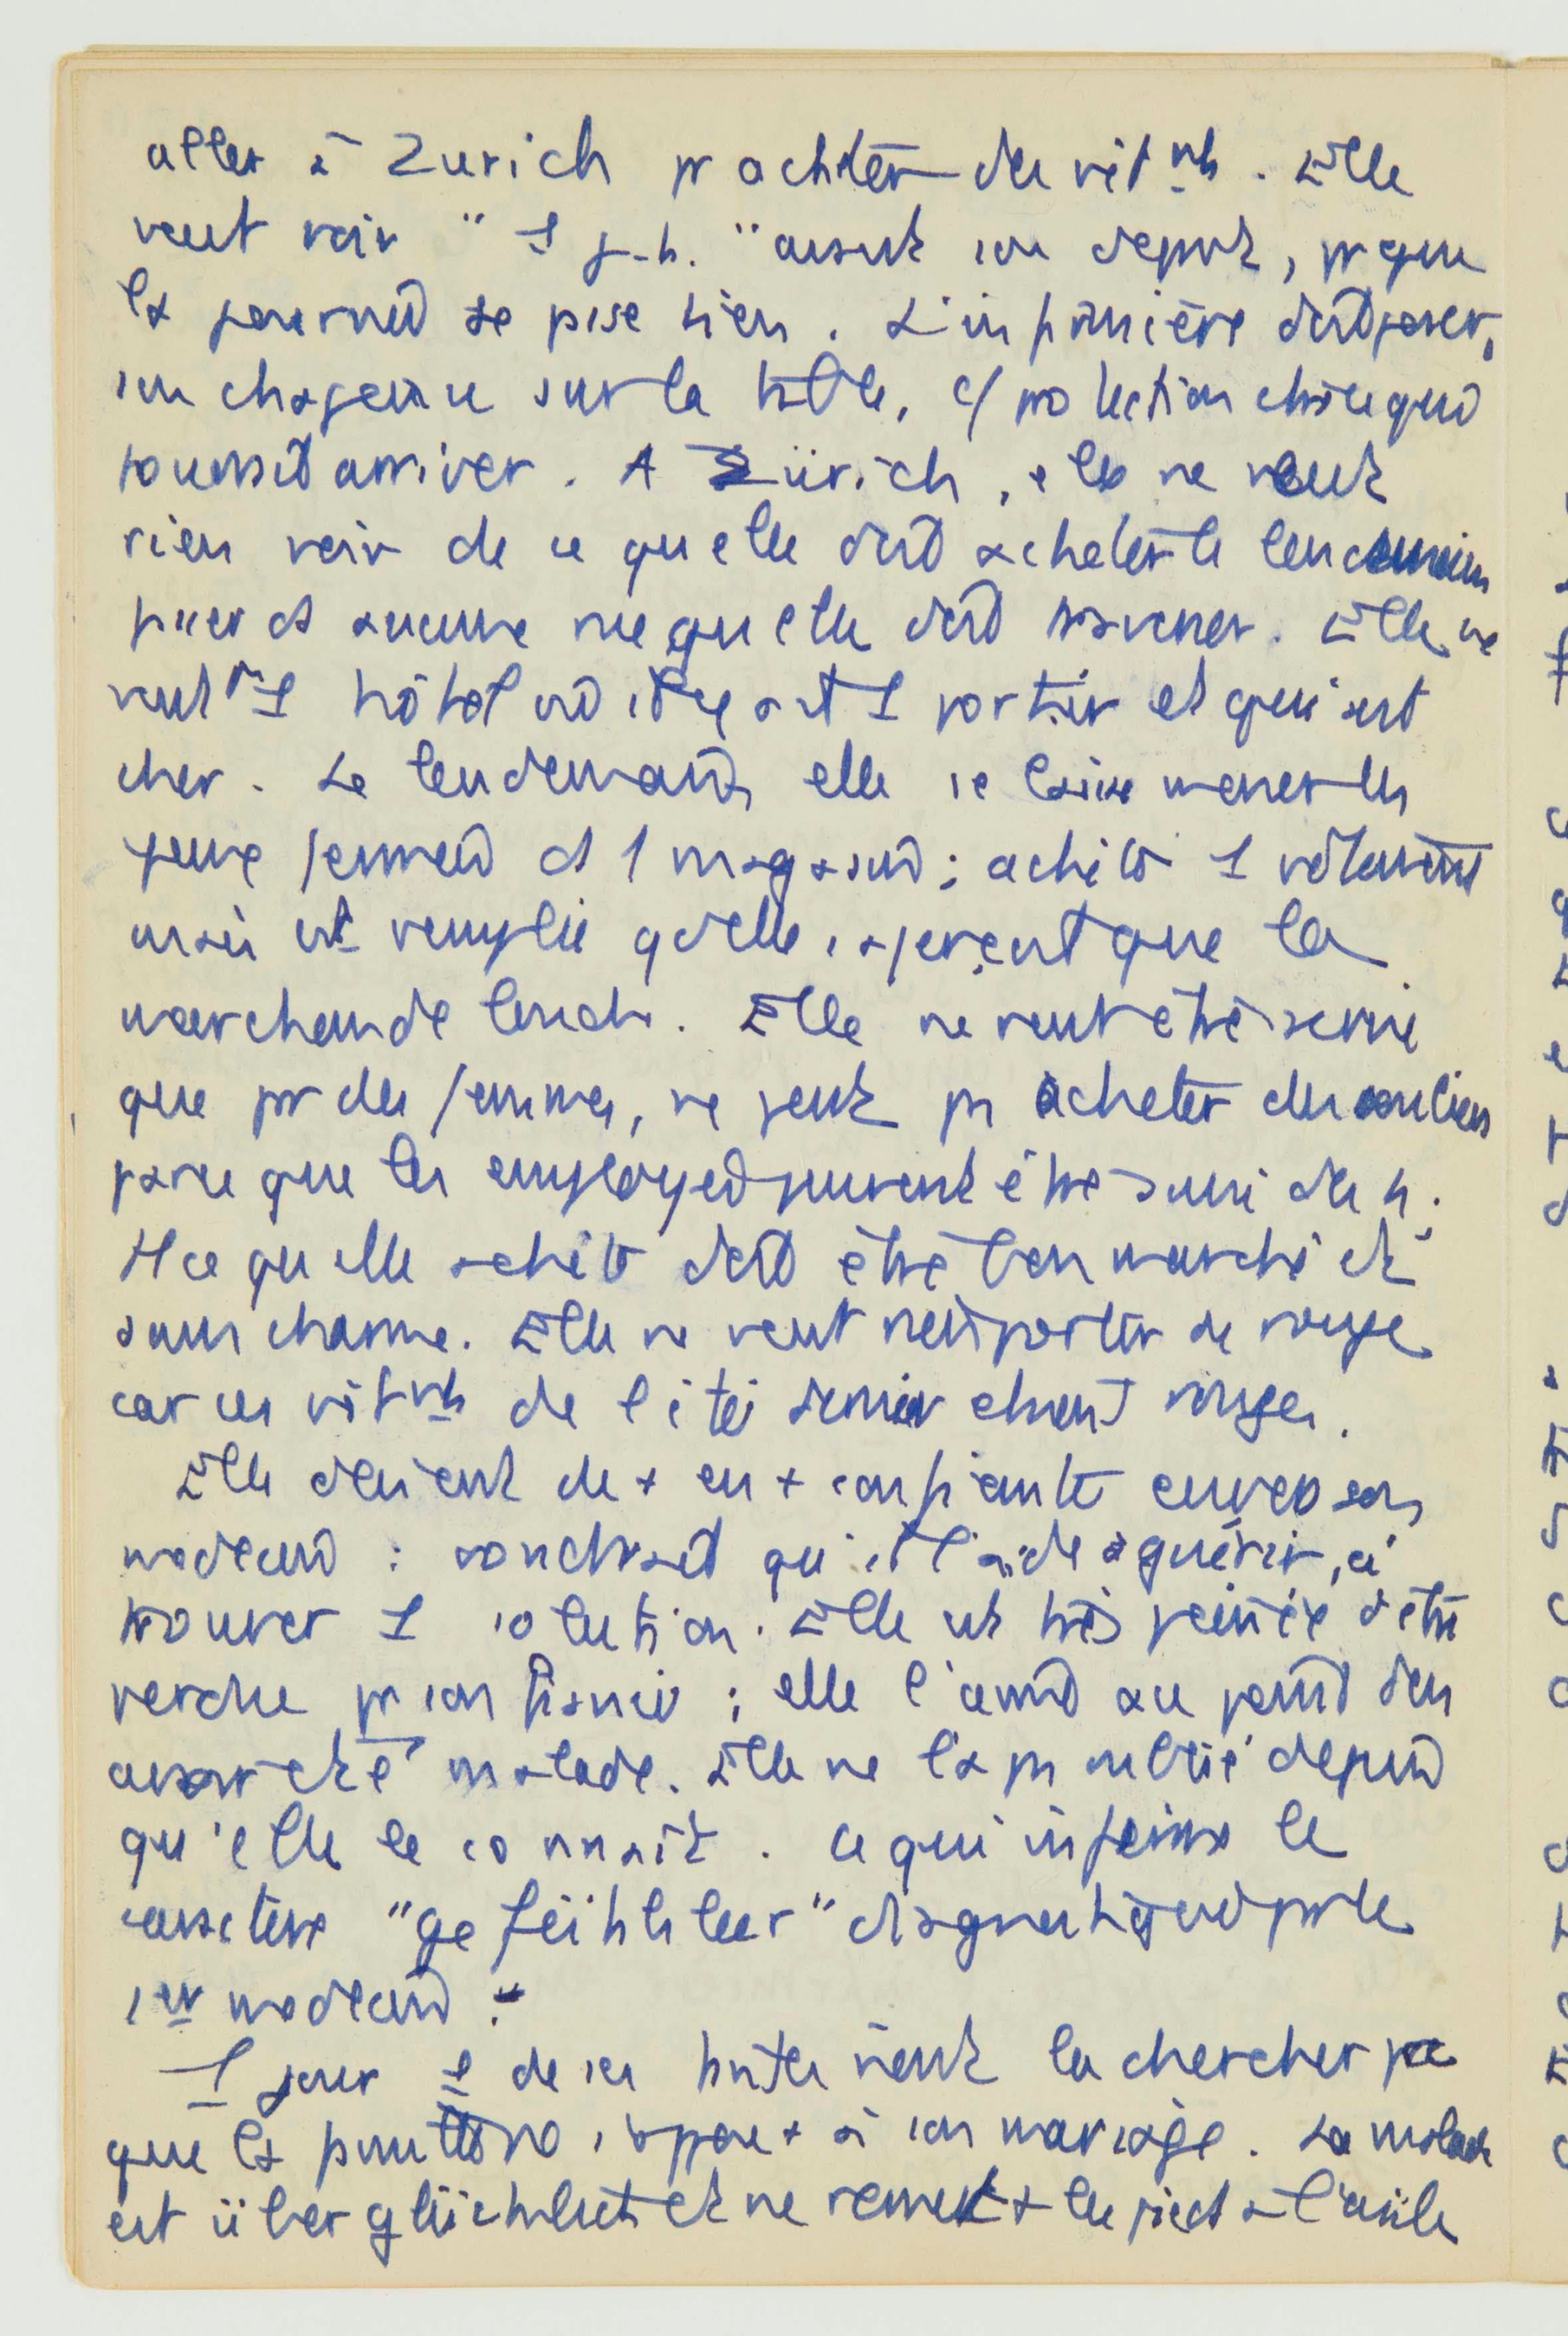 aller à Zurich pr acheter des vêt nts. Elle
veut voir " 1 p.h. " avant son départ, pr que
la journée se passe bien. L'infirmière doit poser,
son chapeau sur la table, c/ protection chaque
pourrait arriver. A Zürich, elle ne veut
rien voir de ce qu elle doit acheter le lendemain
ni aucune rue qu elle doit traverser. Elle ne
veut 1 hôtel où il y ait 1 portier et qui soit
cher. Le lendemain elle se laisse mener les
yeux fermés ds 1 magasin; achète 1 vêtement
mais est remplie qd elle s aperçoit que la
marchande louche. Elle ne veut être servie
que pr des femmes, ne peut ps acheter des souliers
parce que les employés peuvent être suivi des h.
tt ce qu elle achète doit être bon marché et
sans charme. Elle ne veut rien porter de rouge
car ces vêt nts de l'été dernier étaient rouges.
Elle devient de + en + confiante envers son
médecin : voudrait qu'il l'aide à guérir, à
trouver 1 solution. Elle est très peinée d'être
perdue pr son fiancé ; elle l'aimait au point d'en
avoir été malade. Elle ne l'a ps oublié depuis
qu'elle le connait. Ce qui infirme le
caractère "gefühlsleer" diagnostiqué par le
1 er médecin.
1 jour 1 de ses tantes vient la chercher parce
que la s'oppose + à son mariage. La malade
est überglücklich et ne remet + les pieds à l'asile